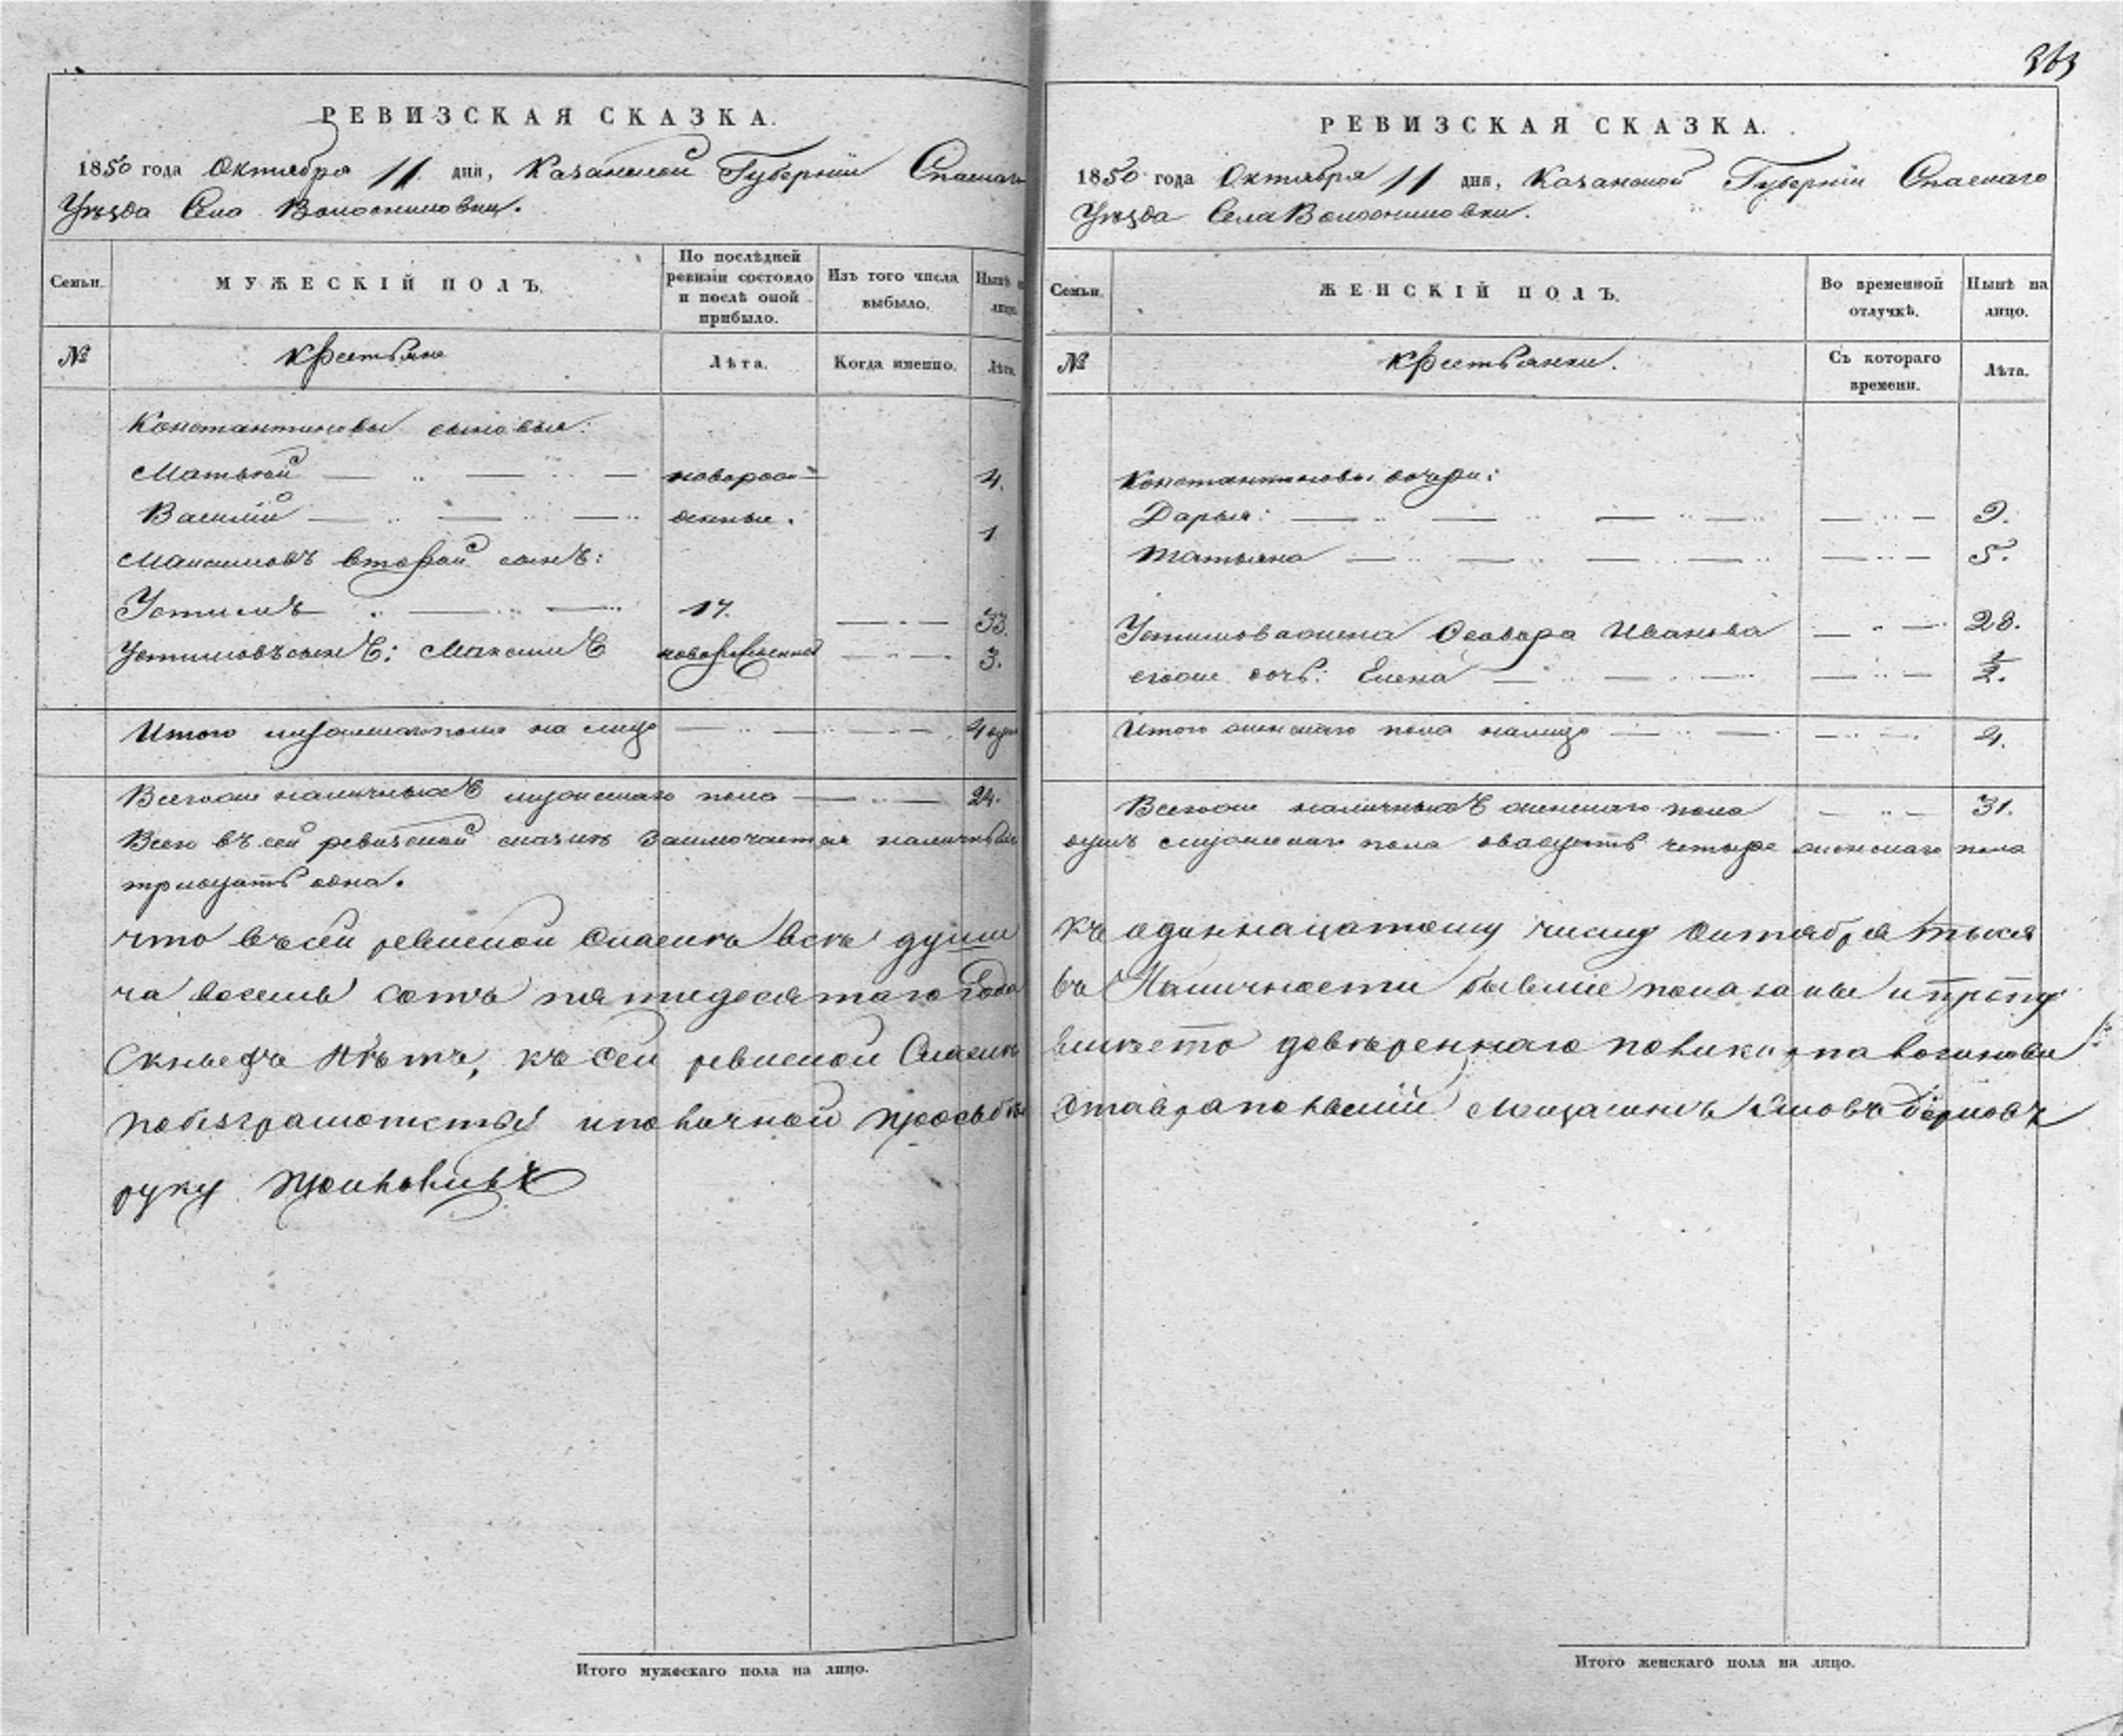 363
РЕВИЗСКАЯ СКАЗКА.
1850 года Октября 11 дня, Казанской Губернiи Спаскаго
Уѣзда Села
Семьи.
МУЖЕСКIЙ ПОЛЪ.
По послѣдней ревизiи состояло и послѣ оной прибыло.
Изъ того числа выбыло.
Нынѣ на лицо.
№
Крестьяне
Лѣта.
Когда именно.
Лѣта.
Константиновы сыновья:
Матвей новорож- 4.
Василiй денные. 1
Максимовъ второй сынъ:
Устимъ 17. 33.
Устимовъ сынъ: Максимъ новорожденной 3.
Итого мужескаго пола на лицо 4 души
Всегоже наличныхъ мужескаго пола 24.
Всего въ сей ревизской сказкѣ заключается наличныхъ
тридцать одна.
что въ сей ревиской скаскѣ всѣ души
ча восемь сотъ пятидесятаго Года
нѣтъ, къ сей ревиской Скаскѣ
побезграмотству иполичной прозьбѣ
руку приложилъ
Итого мужескаго пола на лицо.
РЕВИЗСКАЯ СКАЗКА.
1850 года Октября 11 дня, Казанской Губернiи Спаскаго
Уѣзда Села
Семьи.
ЖЕНСКIЙ ПОЛЪ.
Во временной отлучкѣ.
Нынѣ на лицо.
№
Крестьянки.
Съ котораго времени.
Лѣта.
Константиновы дочери:
Дарья: 9.
Татьяна 5.
Устимова жена Федора Иванова 28.
егоже дочь: Елена 1/2.
Итого женскаго пола налицо 4.
Всегоже наличныхъ женскаго пола 31.
душъ мужескаго пола двадцать четыре женскаго пола
къ одиннацатому числу Октября тыся
въ Наличности бывшие показаны и
вместо довѣреннаго
мещанинъ
Итого женскаго пола на лицо.